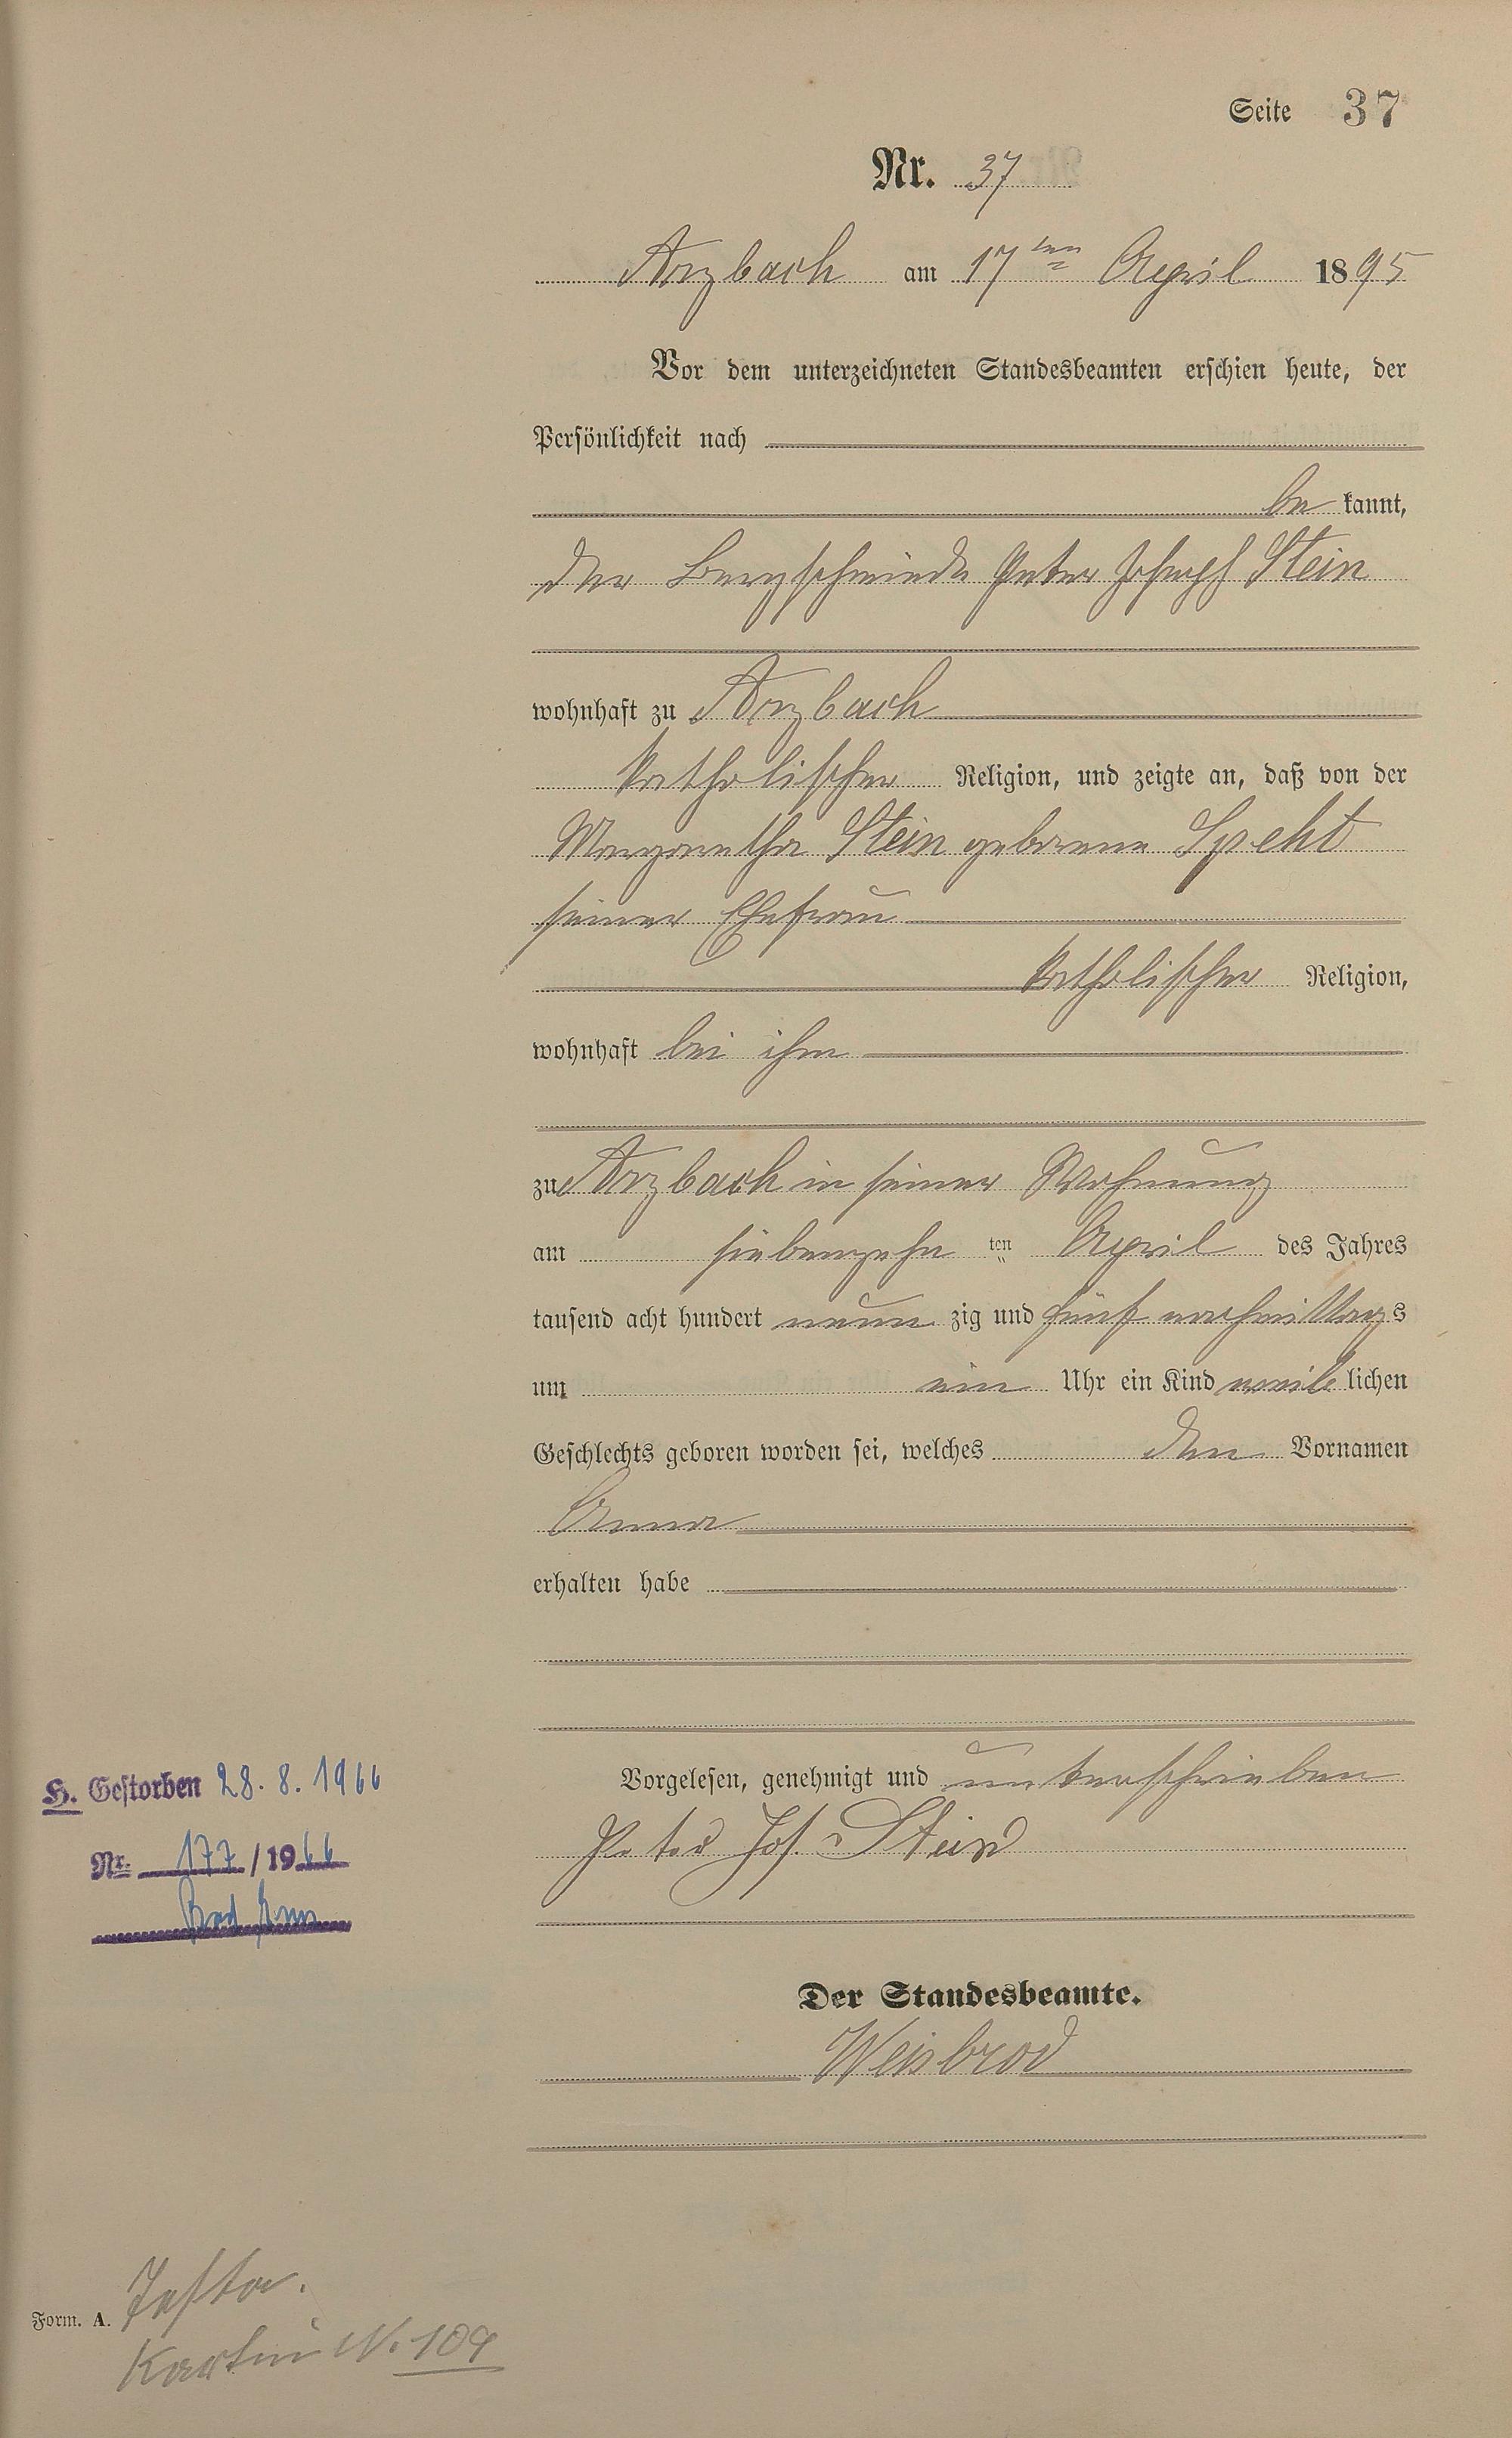 Seite 37
Nr. 37
Arzbach am 17ten April 1895
Vor dem unterzeichneten Standesbeamten erschien heute, der
Persönlichkeit nach
be kannt,
der Bergschmied Peter Joseph Stein
wohnhaft zu Arzbach
katholischer Religion, und zeigte an, daß von der
Margaretha Stein geborene Speht
seiner Ehefrau
katholischer Religion,
wohnhaft bei ihm
zu Arzbach in seiner Wohnung
am siebenzehn ten April des Jahres
tausend acht hundert neun zig und fünf nachmittags
um ein Uhr ein Kind weib lichen
Geschlechts geboren worden sei, welches den Vornamen
Anna
erhalten habe
Vorgelesen, genehmigt und unterschrieben
Peter Jos. Stein
Der Standesbeamte.
Weisbrod
H. Gestorben 28. 8. 1966
Nr. 177/1966
Bad Ems
Form. A.
N. 109